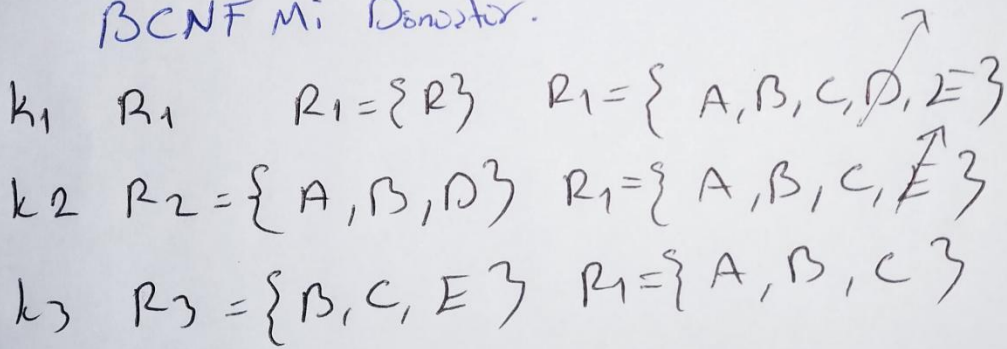 BCNF Mi Dönüştür.
k1 R1 R1={R} R1={ A,B,C,D,E}
k2 R2={ A,B,D} R1={ A,B,C,E}
k3 R3={B,C,E} R1={A,B,C}